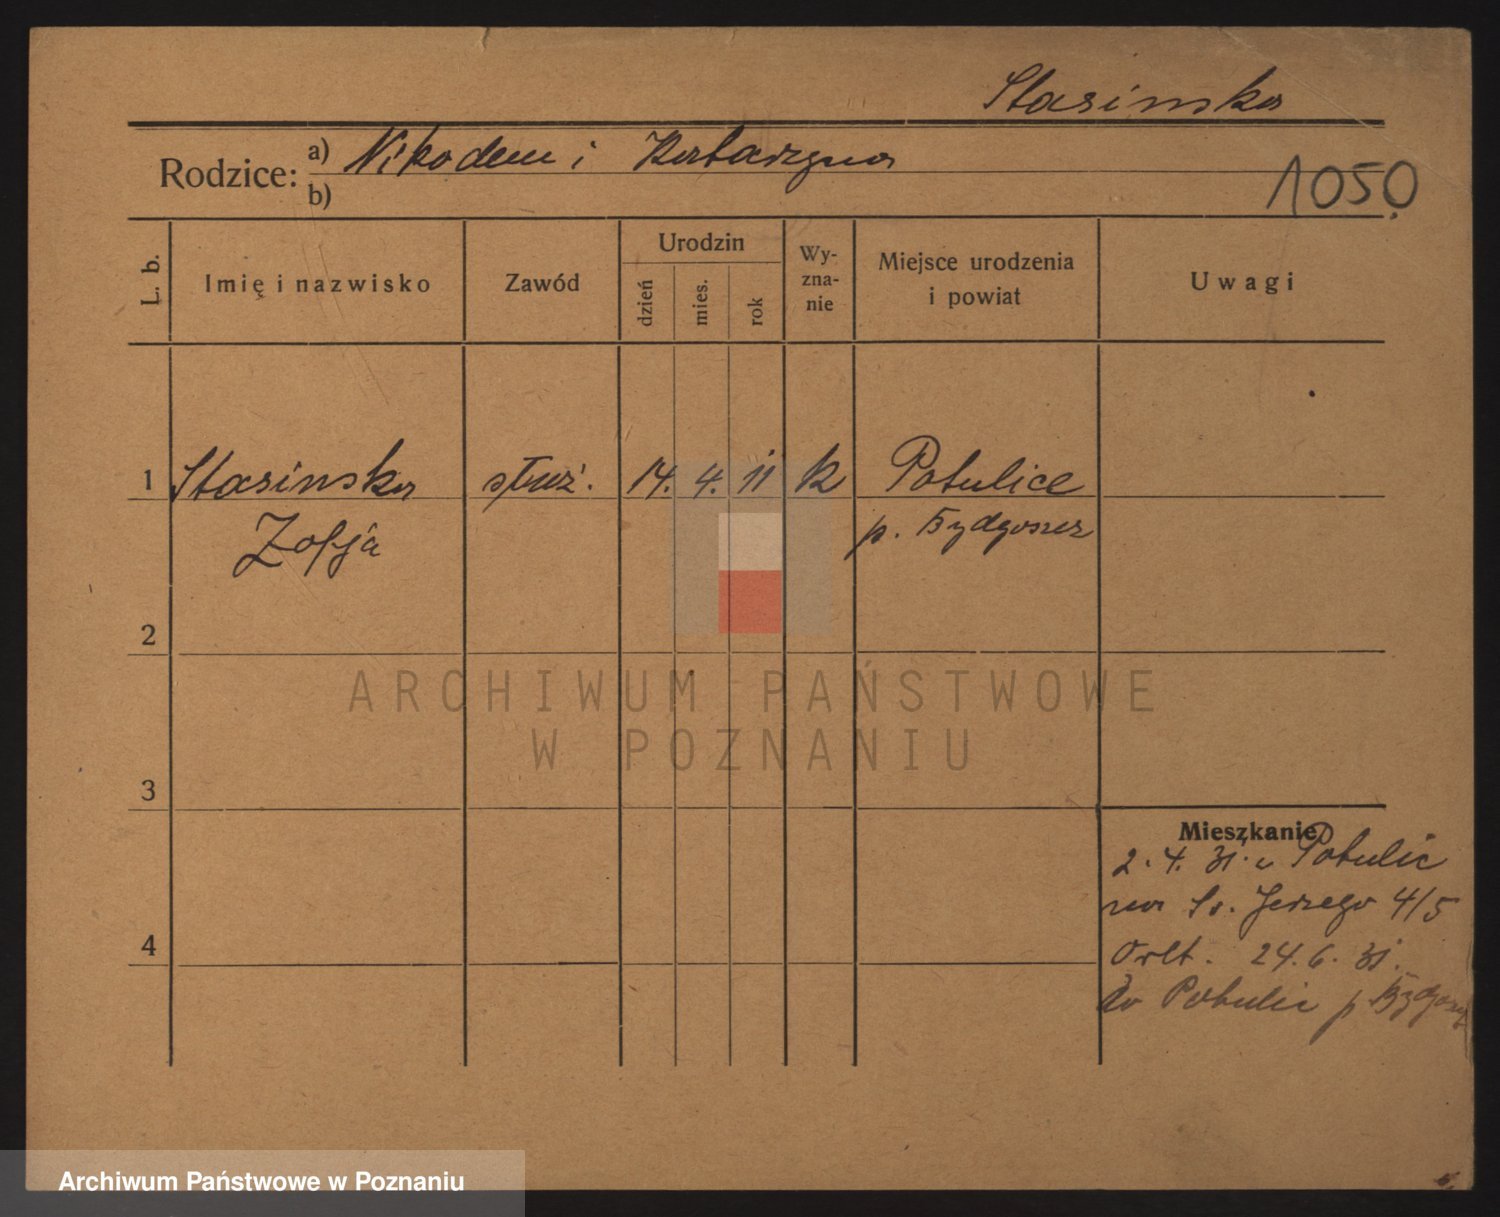 Stasinska
Rodzice: a) Nikodem i Katarzyna
b)
1050
L. b.
Imię i nazwisko
Zawód
Urodzin
dzień
mies.
rok
Wy-
zna-
nie
Miejsce urodzenia
i powiat
Uwagi
1 Stasinska służ. 14. 4. 11 k Potulice
Zofja p. Bydgoszcz
2
ARCHIWUM PAŃSTWOWE
W POZNANIU
3
Mieszkanie
2. 4. 31. z Potulic
na Św. Jerzego 4/5
4
24. 6. 31.
do Potulic p Bydgoszcz
Archiwum Państwowe w Poznaniu